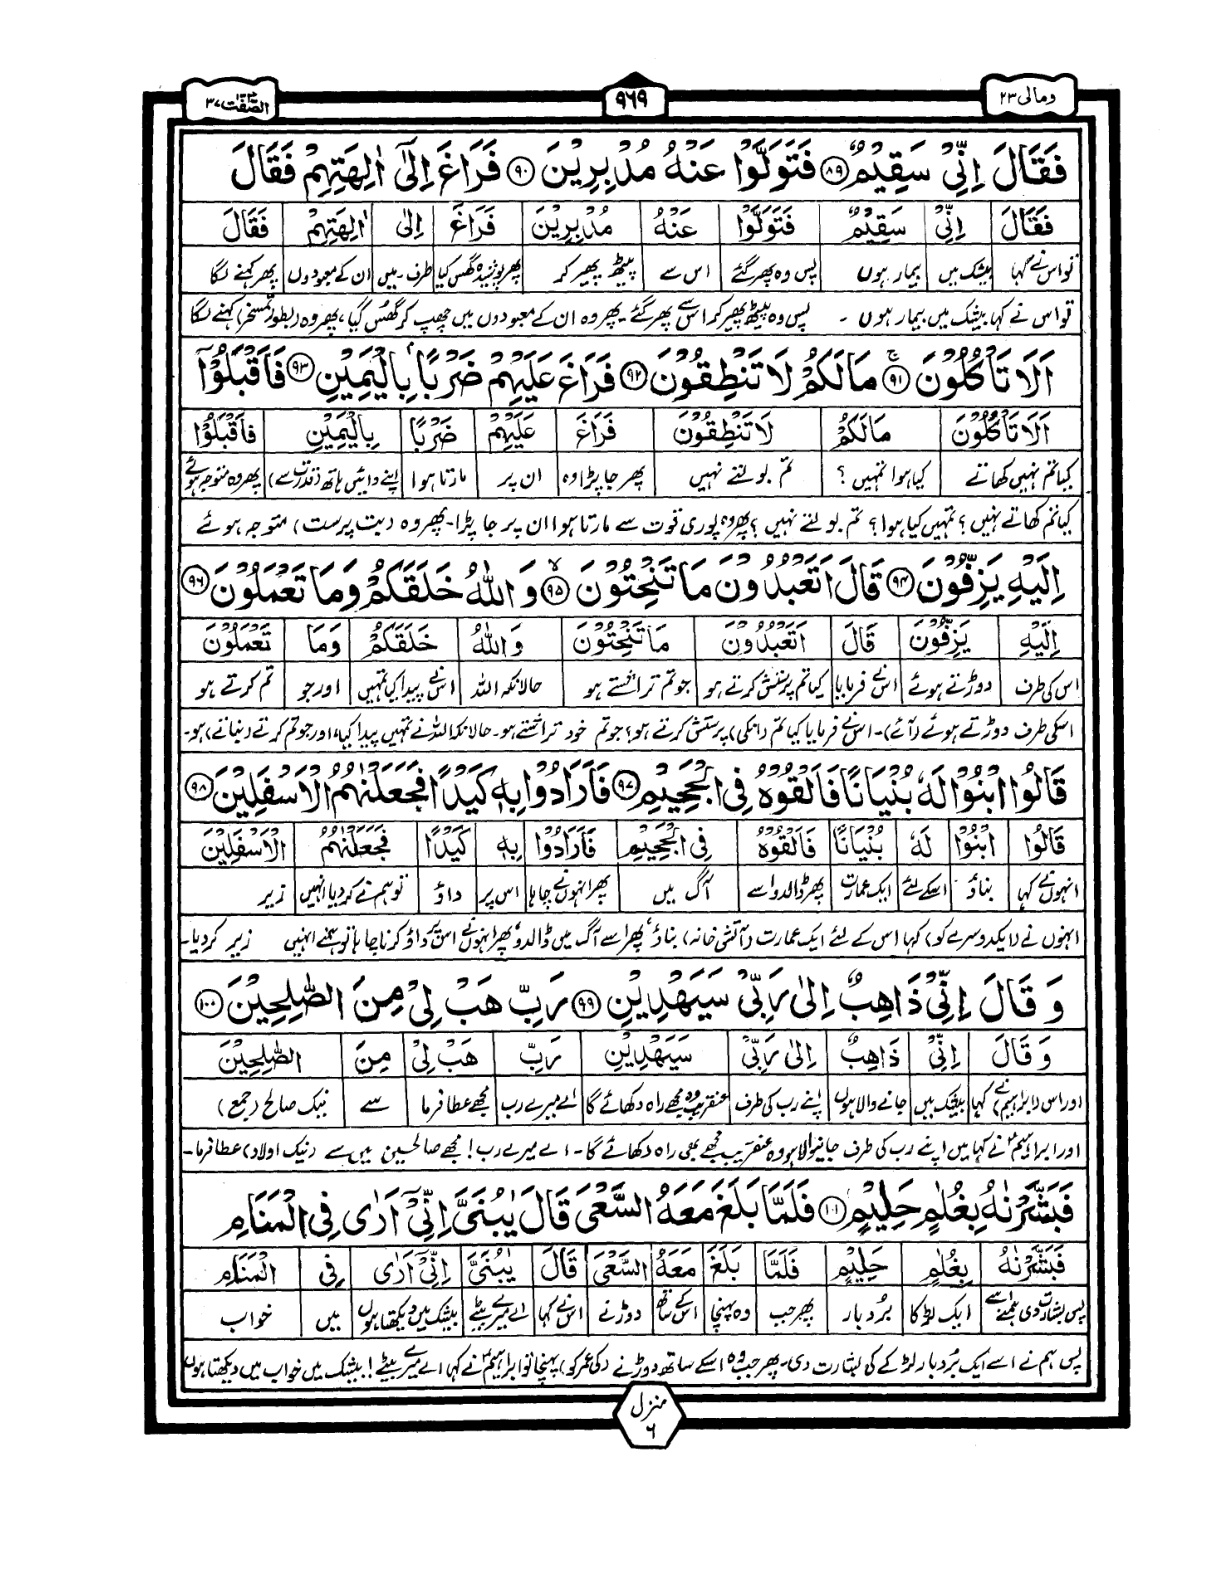 ومالی ۲۳
۹۶۹
الصّٰفّٰت ۳۷
فَقَالَ اِنِّیْ سَقِیْمٌ ﴿۸۹﴾ فَتَوَلَّوْا عَنْهُ مُدْبِرِیْنَ ﴿۹۰﴾ فَرَاغَ اِلٰۤی اٰلِهَتِهِمْ فَقَالَ
فَقَالَ اِنِّیْ سَقِیْمٌ فَتَوَلَّوْا عَنْهُ مُدْبِرِیْنَ فَرَاغَ اِلٰی اٰلِهَتِهِمْ فَقَالَ
تو اس نے کہا بیشک میں بیمار ہوں پس وہ پھر گئے اس سے پیٹھ پھیر کر پھر پوشیدہ گھس گیا طرف ۔ میں ان کے معبودوں پھر کہنے لگا
تو اس نے کہا بیشک میں بیمار ہوں ۔ پس وہ پیٹھ پھیر کر اس سے پھر گئے ۔ پھر وہ ان کے معبودوں میں چھپ کر گھس گیا، پھر وہ (بطور تمسخر) کہنے لگا
اَلَا تَاْكُلُوْنَ ﴿۹۱﴾ مَا لَكُمْ لَا تَنْطِقُوْنَ ﴿۹۲﴾ فَرَاغَ عَلَیْهِمْ ضَرْبًۢا بِالْیَمِیْنِ ﴿۹۳﴾ فَاَقْبَلُوْۤا
اَلَا تَاْكُلُوْنَ مَا لَكُمْ لَا تَنْطِقُوْنَ فَرَاغَ عَلَیْهِمْ ضَرْبًۢا بِالْیَمِیْنِ فَاَقْبَلُوْۤا
کیا تم نہیں کھاتے کیا ہوا تمہیں ؟ تم بولتے نہیں پھر جا پڑا وہ ان پر مارتا ہوا اپنے دائیں ہاتھ (قدرت سے) پھر وہ متوجہ ہوئے
کیا تم کھاتے نہیں ؟ تمہیں کیا ہوا ؟ تم بولتے نہیں ؟ پھر وہ پوری قوت سے مارتا ہوا ان پر جا پڑا ۔ پھر وہ (بت پرست) متوجہ ہوئے
اِلَیْهِ یَزِفُّوْنَ ﴿۹۴﴾ قَالَ اَتَعْبُدُوْنَ مَا تَنْحِتُوْنَ ﴿۹۵﴾ وَ اللّٰهُ خَلَقَكُمْ وَ مَا تَعْمَلُوْنَ ﴿۹۶﴾
اِلَیْهِ یَزِفُّوْنَ قَالَ اَتَعْبُدُوْنَ مَا تَنْحِتُوْنَ وَ اللّٰهُ خَلَقَكُمْ وَمَا تَعْمَلُوْنَ
اس کی طرف دوڑتے ہوئے اس نے فرمایا کیا تم پرستش کرتے ہو جو تم تراشتے ہو حالانکہ اللہ اس نے پیدا کیا تمہیں اور جو تم کرتے ہو
اسکی طرف دوڑتے ہوئے (آئے) ۔ اس نے فرمایا کیا تم (انکی) پرستش کرتے ہو؟ جو تم خود تراشتے ہو ۔ حالانکہ اللہ نے تمہیں پیدا کیا، اور جو تم کرتے (بناتے) ہو ۔
قَالُوا ابْنُوْا لَهٗ بُنْیَانًا فَاَلْقُوْهُ فِی الْجَحِیْمِ ﴿۹۷﴾ فَاَرَادُوْا بِهٖ كَیْدًا فَجَعَلْنٰهُمُ الْاَسْفَلِیْنَ ﴿۹۸﴾
قَالُوا ابْنُوْا لَهٗ بُنْیَانًا فَاَلْقُوْهُ فِی الْجَحِیْمِ فَاَرَادُوْا بِهٖ كَیْدًا فَجَعَلْنٰهُمُ الْاَسْفَلِیْنَ
انہوں نے کہا بناؤ اسکے لئے ایک عمارت پھر ڈالدو اسے آگ میں پھر انہوں نے چاہا اس پر داؤ تو ہم نے کر دیا انہیں زیر
انہوں نے (ایکدوسرے کو) کہا اس کے لئے ایک عمارت (آتش خانہ) بناؤ، پھر اسے آگ میں ڈالدو، پھر انہوں نے اس پر داؤ کرنا چاہا تو ہم نے انہیں زیر کر دیا ۔
وَ قَالَ اِنِّیْ ذَاهِبٌ اِلٰی رَبِّیْ سَیَهْدِیْنِ ﴿۹۹﴾ رَبِّ هَبْ لِیْ مِنَ الصّٰلِحِیْنَ ﴿۱۰۰﴾
وَ قَالَ اِنِّیْ ذَاهِبٌ اِلٰی رَبِّیْ سَیَهْدِیْنِ رَبِّ هَبْ لِیْ مِنَ الصّٰلِحِیْنَ
اور اس (ابراہیم) نے کہا بیشک میں جانے والا ہوں اپنے رب کی طرف عنقریب وہ مجھے راہ دکھائے گا اے میرے رب مجھے عطا فرما سے نیک صالح (جمع)
اور ابراہیمؑ نے کہا میں اپنے رب کی طرف جانیوالا ہوں وہ عنقریب مجھے بھی راہ دکھائے گا ۔ اے میرے رب ! مجھے صالحین میں سے (نیک اولاد) عطا فرما ۔
فَبَشَّرْنٰهُ بِغُلٰمٍ حَلِیْمٍ ﴿۱۰۱﴾ فَلَمَّا بَلَغَ مَعَهُ السَّعْیَ قَالَ یٰبُنَیَّ اِنِّیْۤ اَرٰی فِی الْمَنَامِ
فَبَشَّرْنٰهُ بِغُلٰمٍ حَلِیْمٍ فَلَمَّا بَلَغَ مَعَهُ السَّعْیَ قَالَ یٰبُنَیَّ اِنِّیْۤ اَرٰی فِی الْمَنَامِ
پس بشارت دی ہم نے اسے ایک لڑکا بُردبار پھر جب وہ پہنچا اس کے ساتھ دوڑنے اس نے کہا اے میرے بیٹے بیشک میں دیکھتا ہوں میں خواب
پس ہم نے اسے ایک بُردبار لڑکے کی بشارت دی ۔ پھر جب وہ اسکے ساتھ دوڑنے (کی عمر کو) پہنچا تو ابراہیمؑ نے کہا اے میرے بیٹے ! بیشک میں خواب میں دیکھتا ہوں
منزل ۶